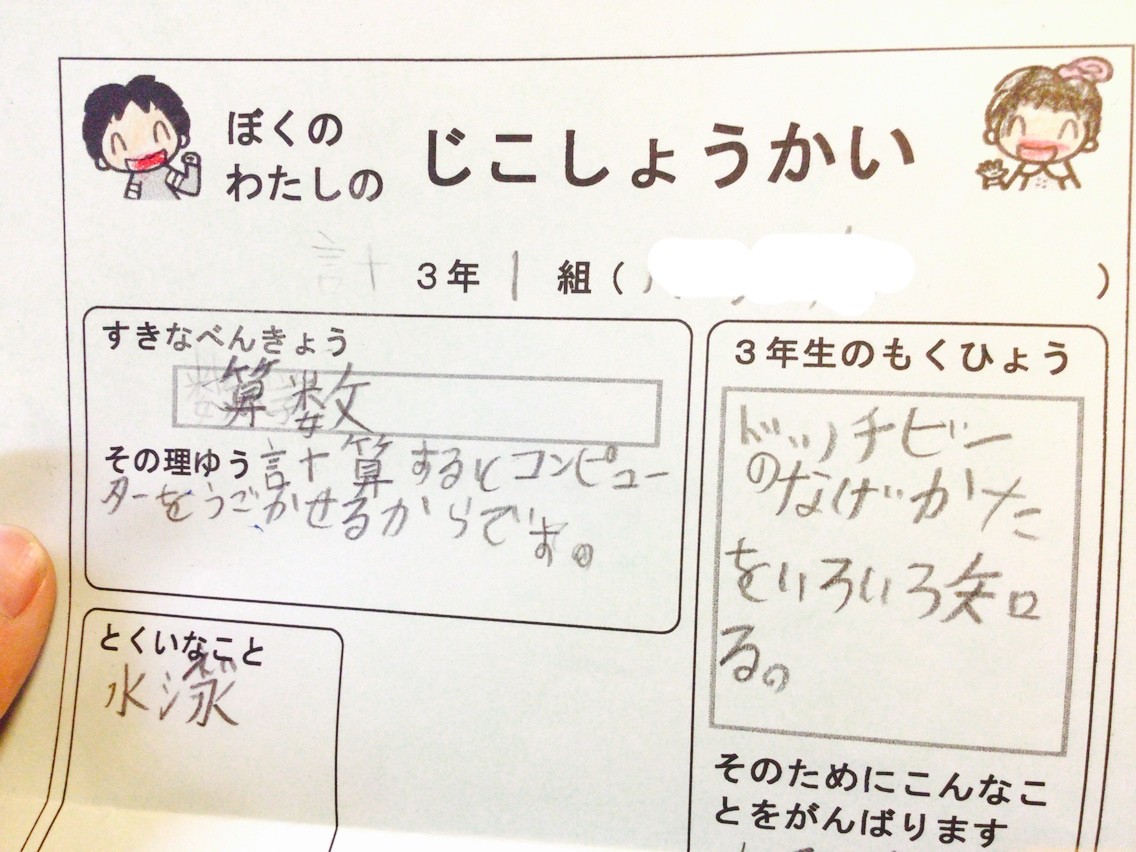 ぼくの
わたしの
じこしょうかい
計
3年 1 組( )
すきなべんきょう
算数
その理ゆう 計算するとコンピュー
ターをうごかせるからです。
とくいなこと
水泳
3年生のもくひょう
ドッチビー
のなげかた
をいろいろ知
る。
そのためにこんなこ
とをがんばります